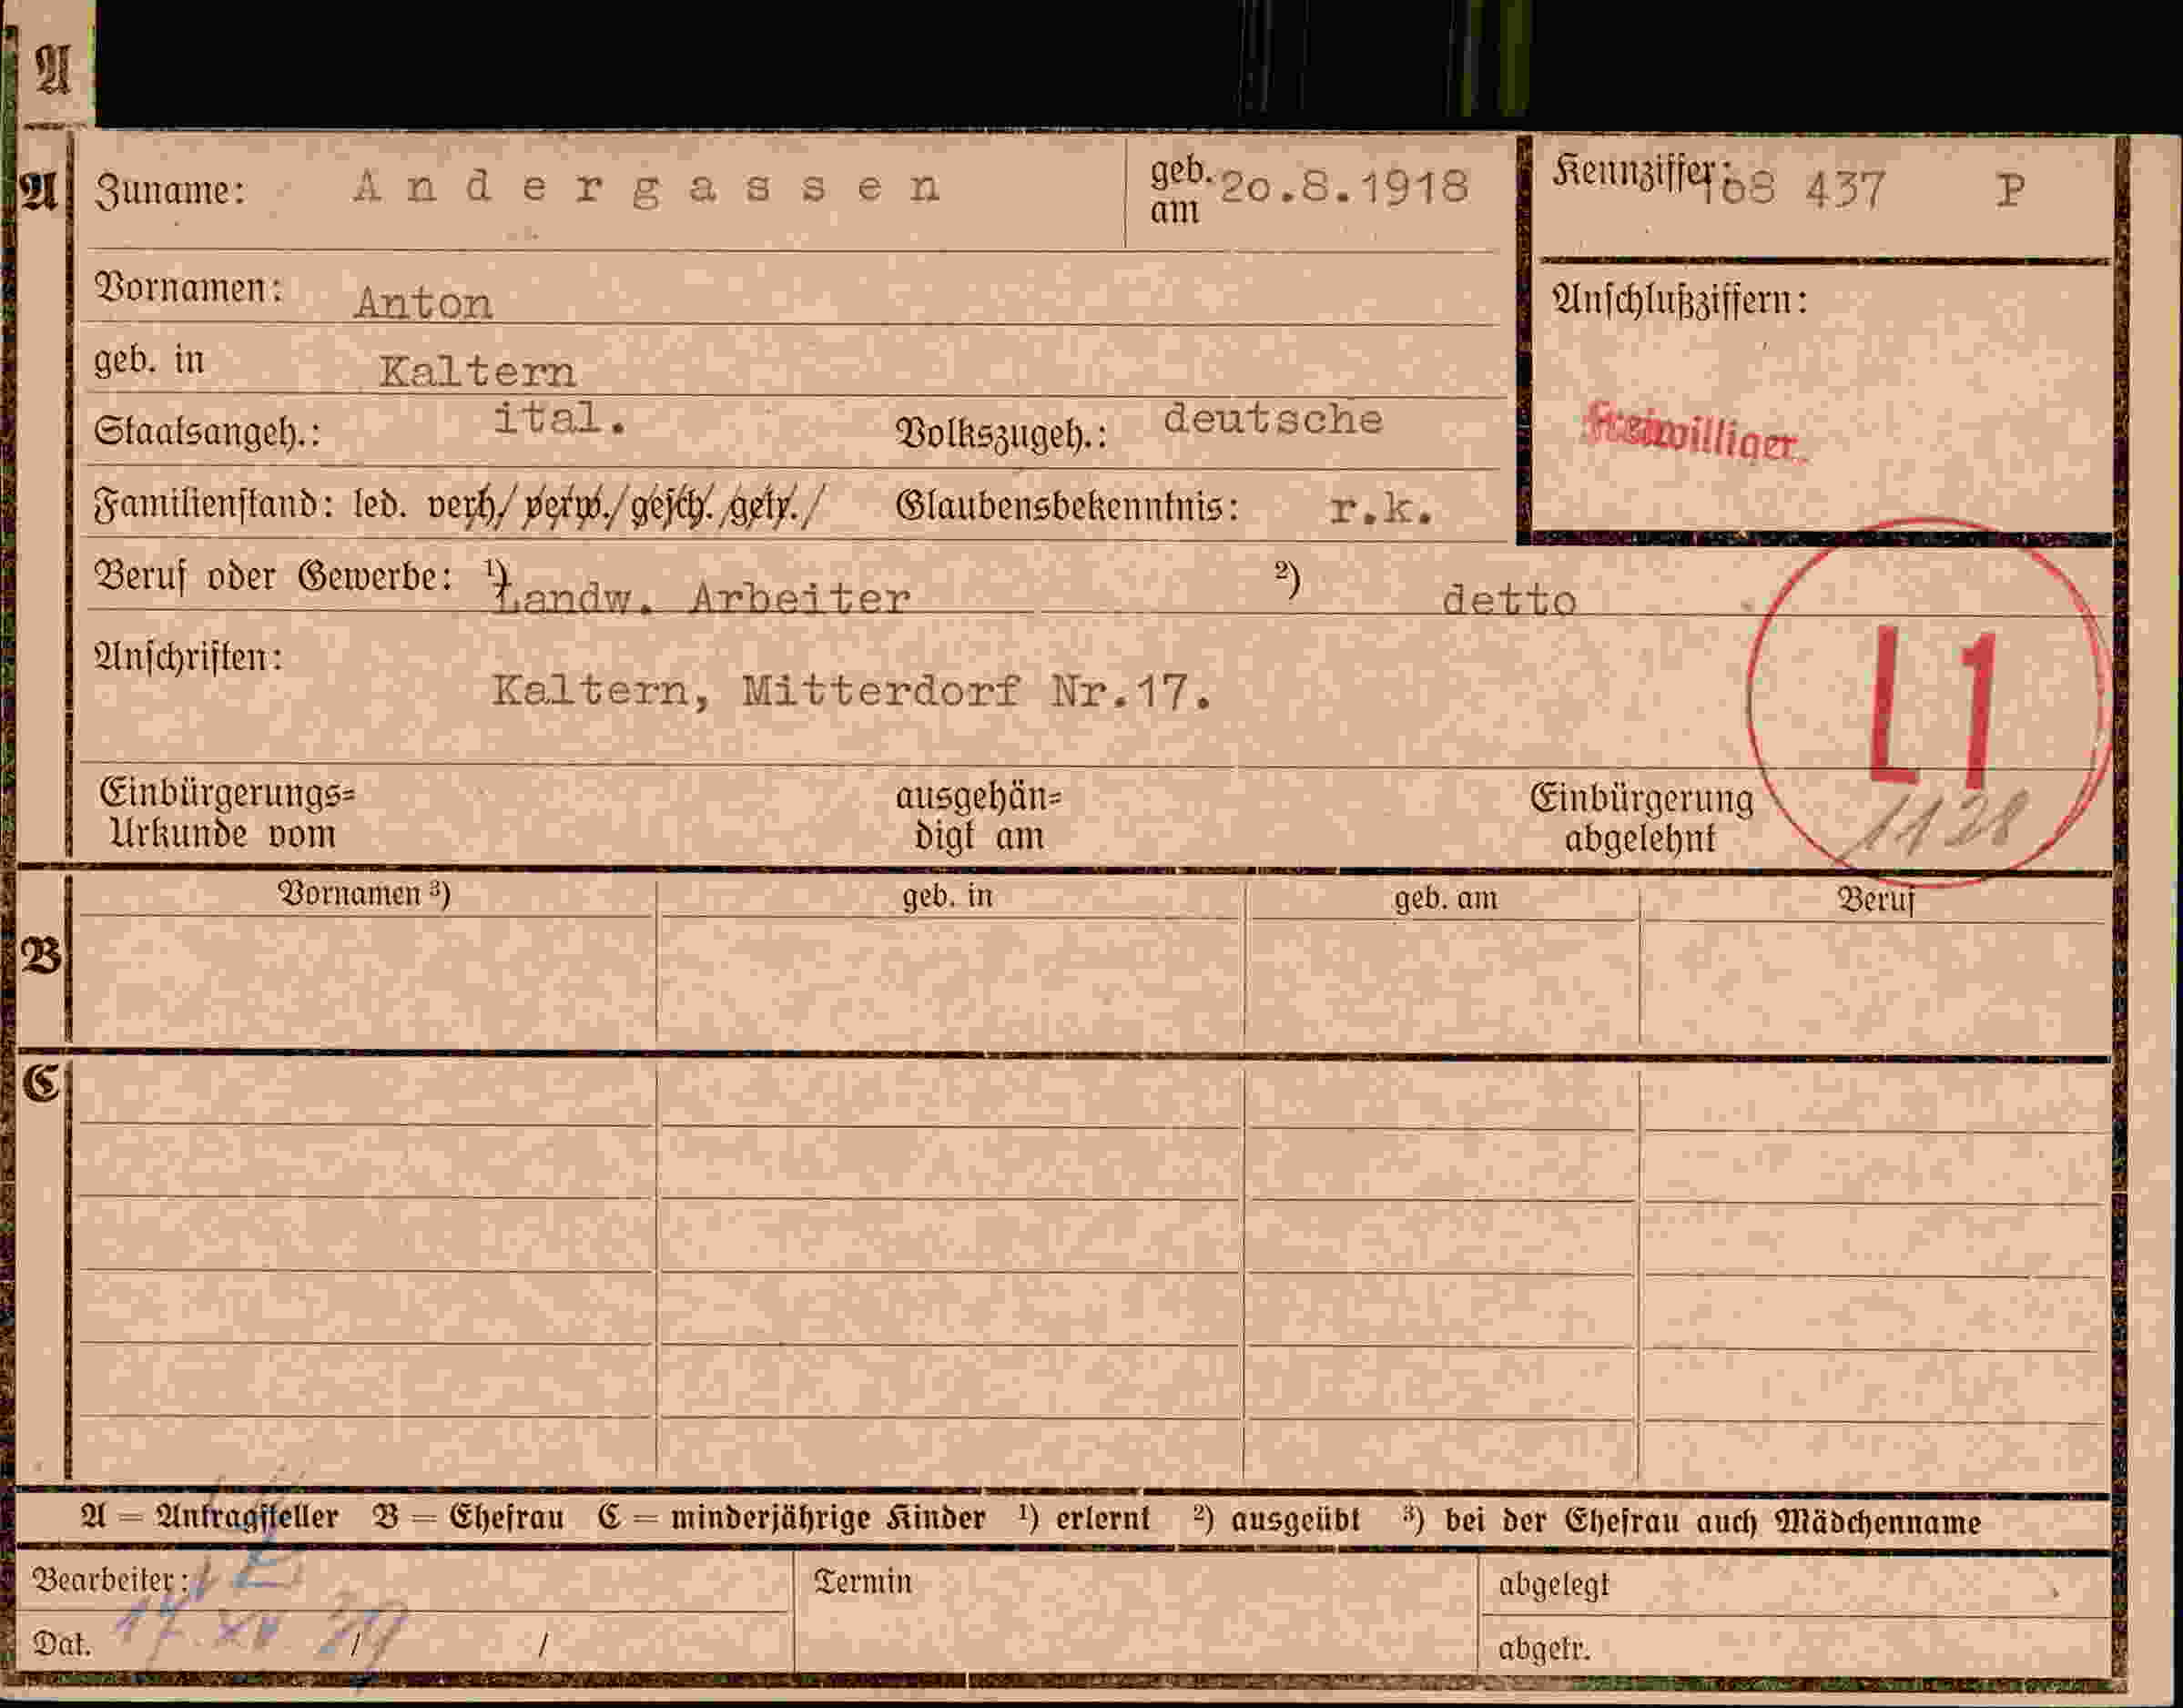 A
A Zuname: Andergassen geb. am 20.8.1918 Kennziffer: 168 437 P
Vornamen: Anton
Anschlußziffern:
geb. in Kaltern
Staatsangeh.: ital. Volkszugeh.: deutsche
Freiwilliger.
Familienstand: led. verh/ verw./ gesch./ getr./ Glaubensbekenntnis: r.k.
Beruf oder Gewerbe: ¹) Landw. Arbeiter ²) detto
Anschriften: Kaltern, Mitterdorf Nr.17.
L 1
1128
Einbürgerungs= ausgehän= Einbürgerung
Urkunde vom digt am abgelehnt
Vornamen ³) geb. in geb. am Beruf
B
C
A = Antragsteller B = Ehefrau C = minderjährige Kinder ¹) erlernt ²) ausgeübt ³) bei der Ehefrau auch Mädchenname
Bearbeiter: Termin abgelegt
Dat. 17. XII 39 / / abgetr.